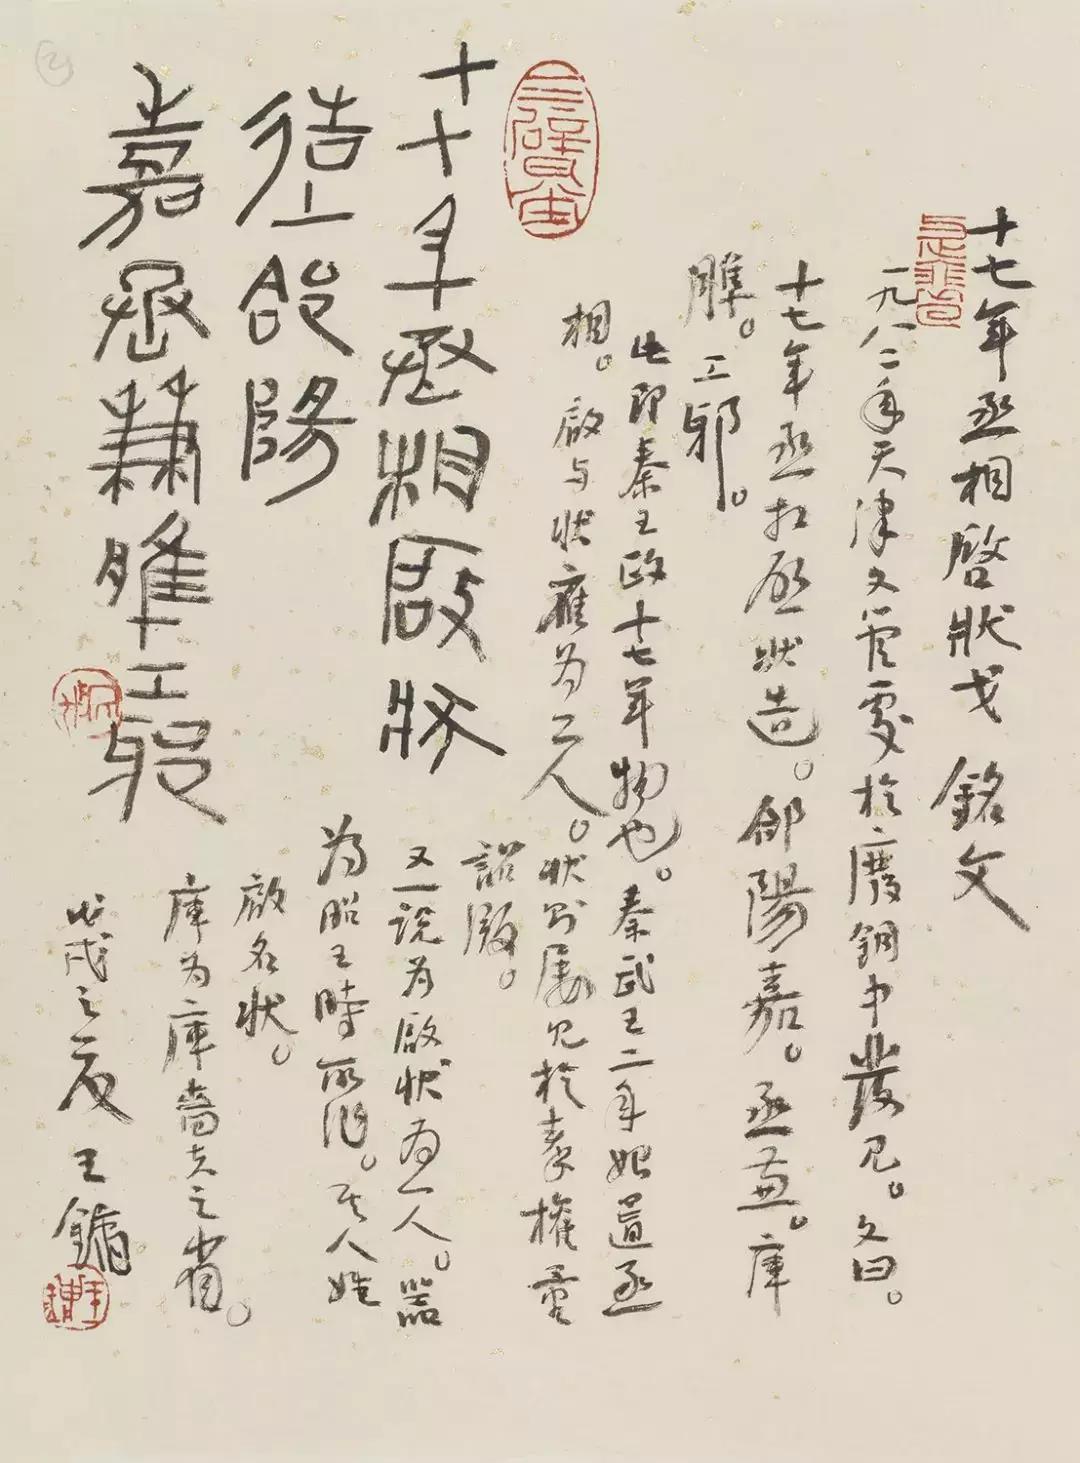 十七年丞相啓狀戈 銘文
一九八二年天津文管處於廢銅中發見。文曰。
十七年丞相啟狀造。郃陽嘉。丞兼。庫
脽。工邪。
此即秦王政十七年物也。秦武王二年始置丞
相。啟与狀應为二人。狀則屡见於秦權量
詔版。
又一説为啟状为一人。器
为昭王時所作。其人姓
啟名状。
庫为庫嗇夫之省。
十七年丞相啟狀
造上郃陽
嘉丞兼庫脽工邪
戊戌之夏 王鏞